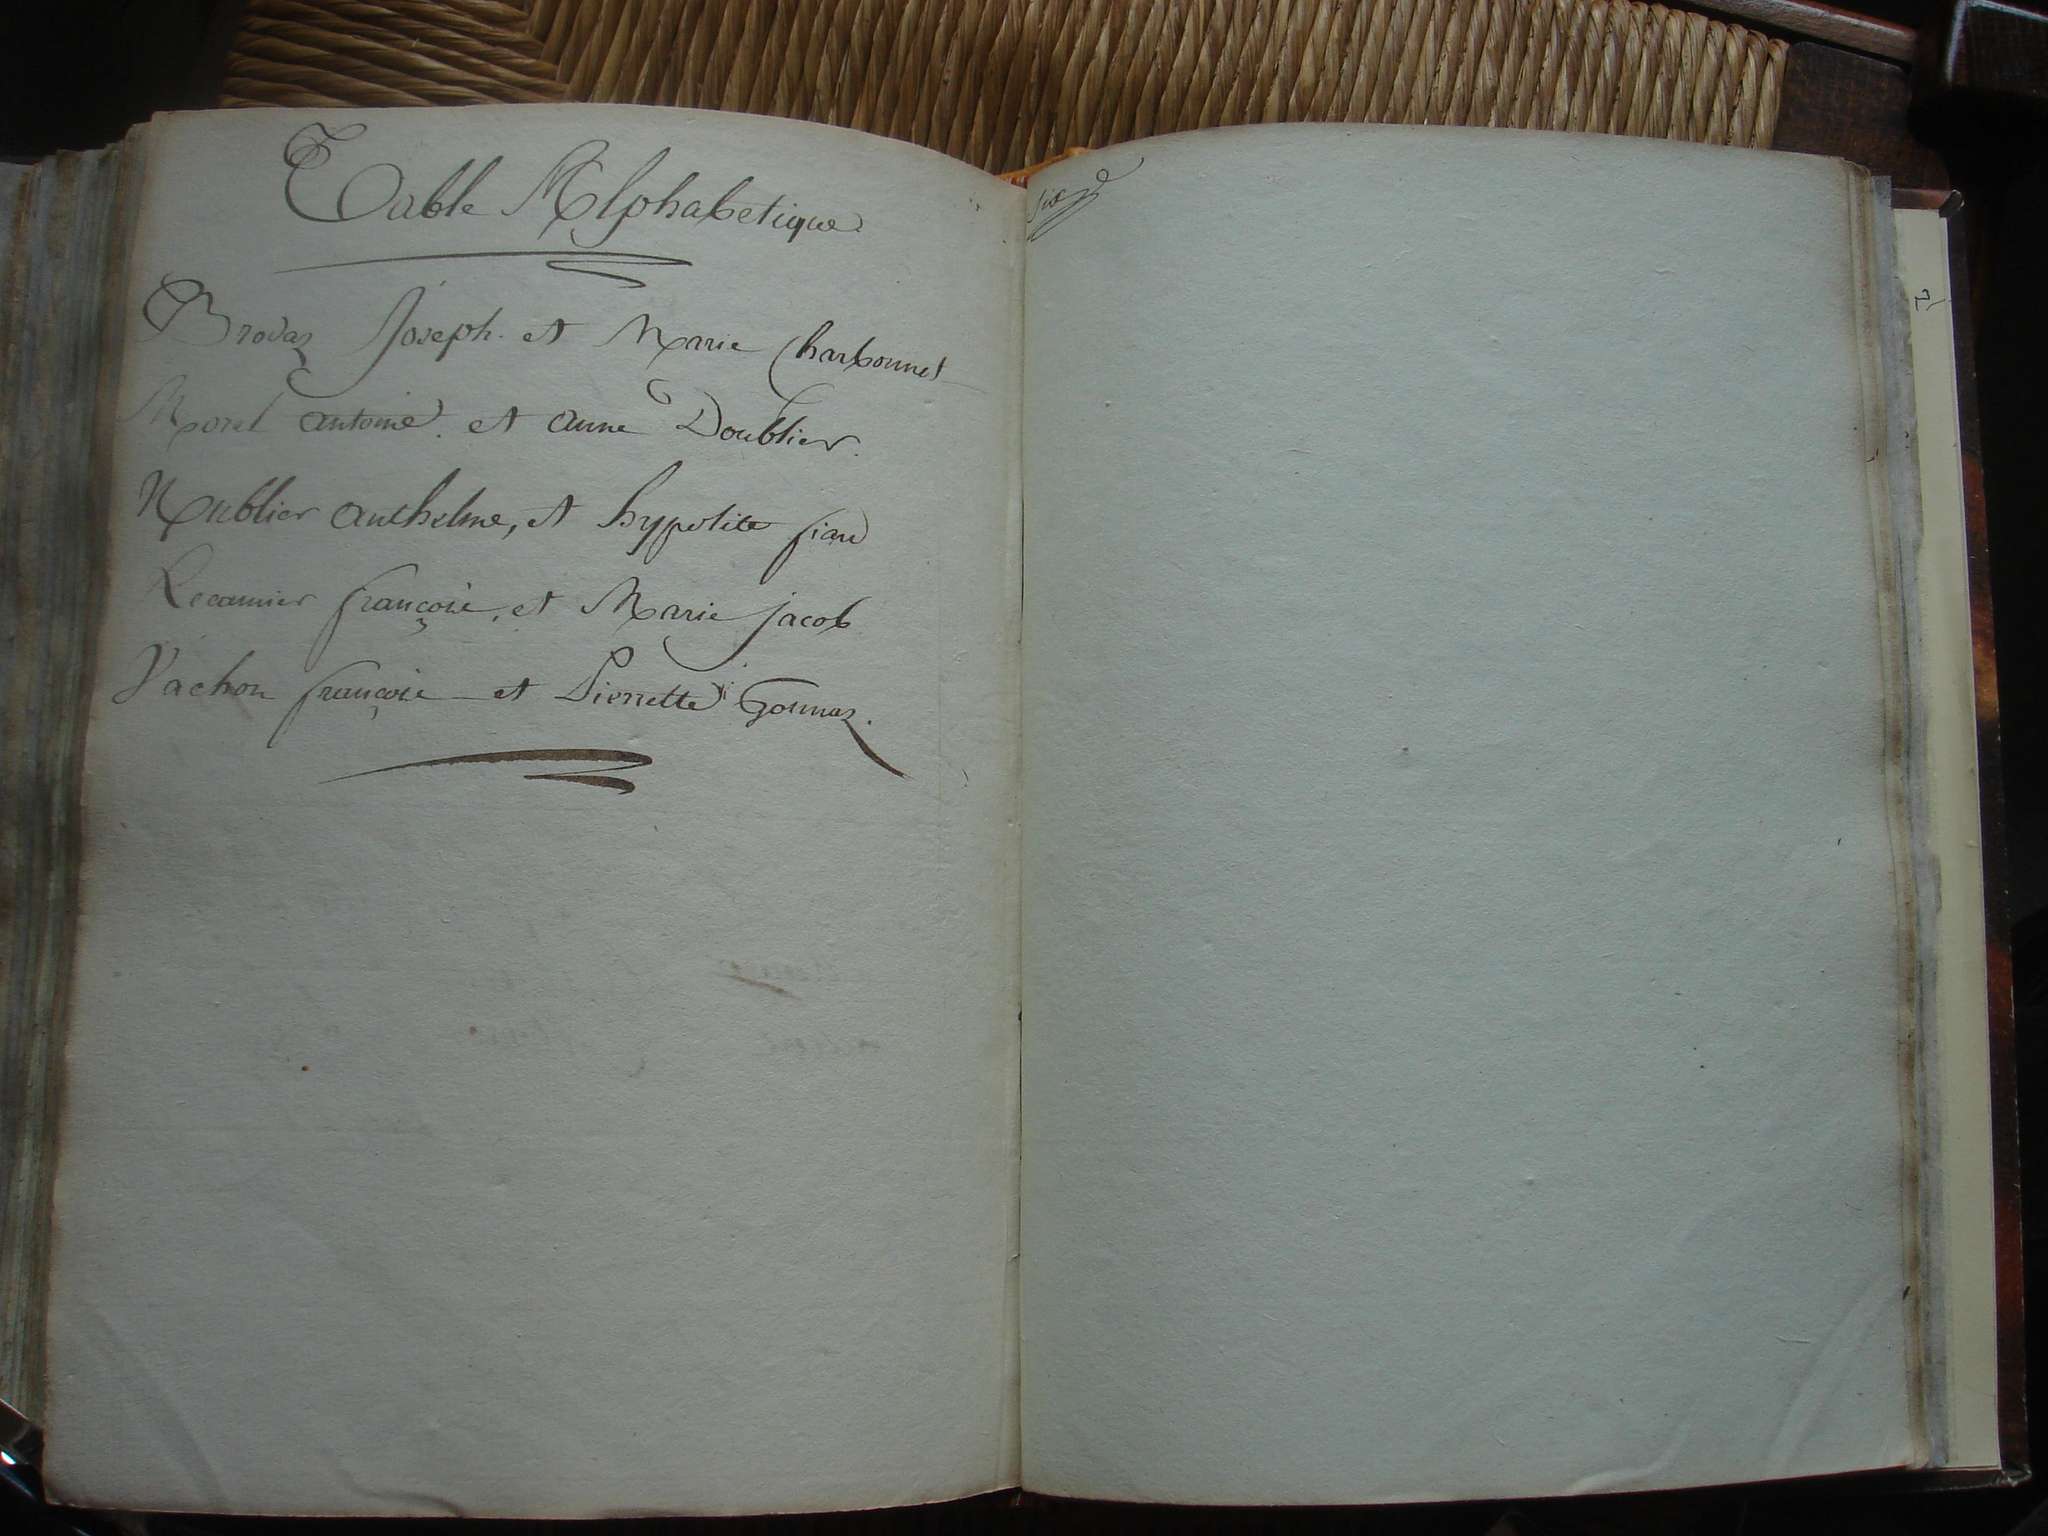 Table Alphabetique
Brovaz Joseph. et Marie Charbonnet
Morel antoine. et anne Doublier.
Nublier anthelme, et hypolite
Recamier françois, et Marie jacob
Vachon françois et Pierrette Gonnaz.
six